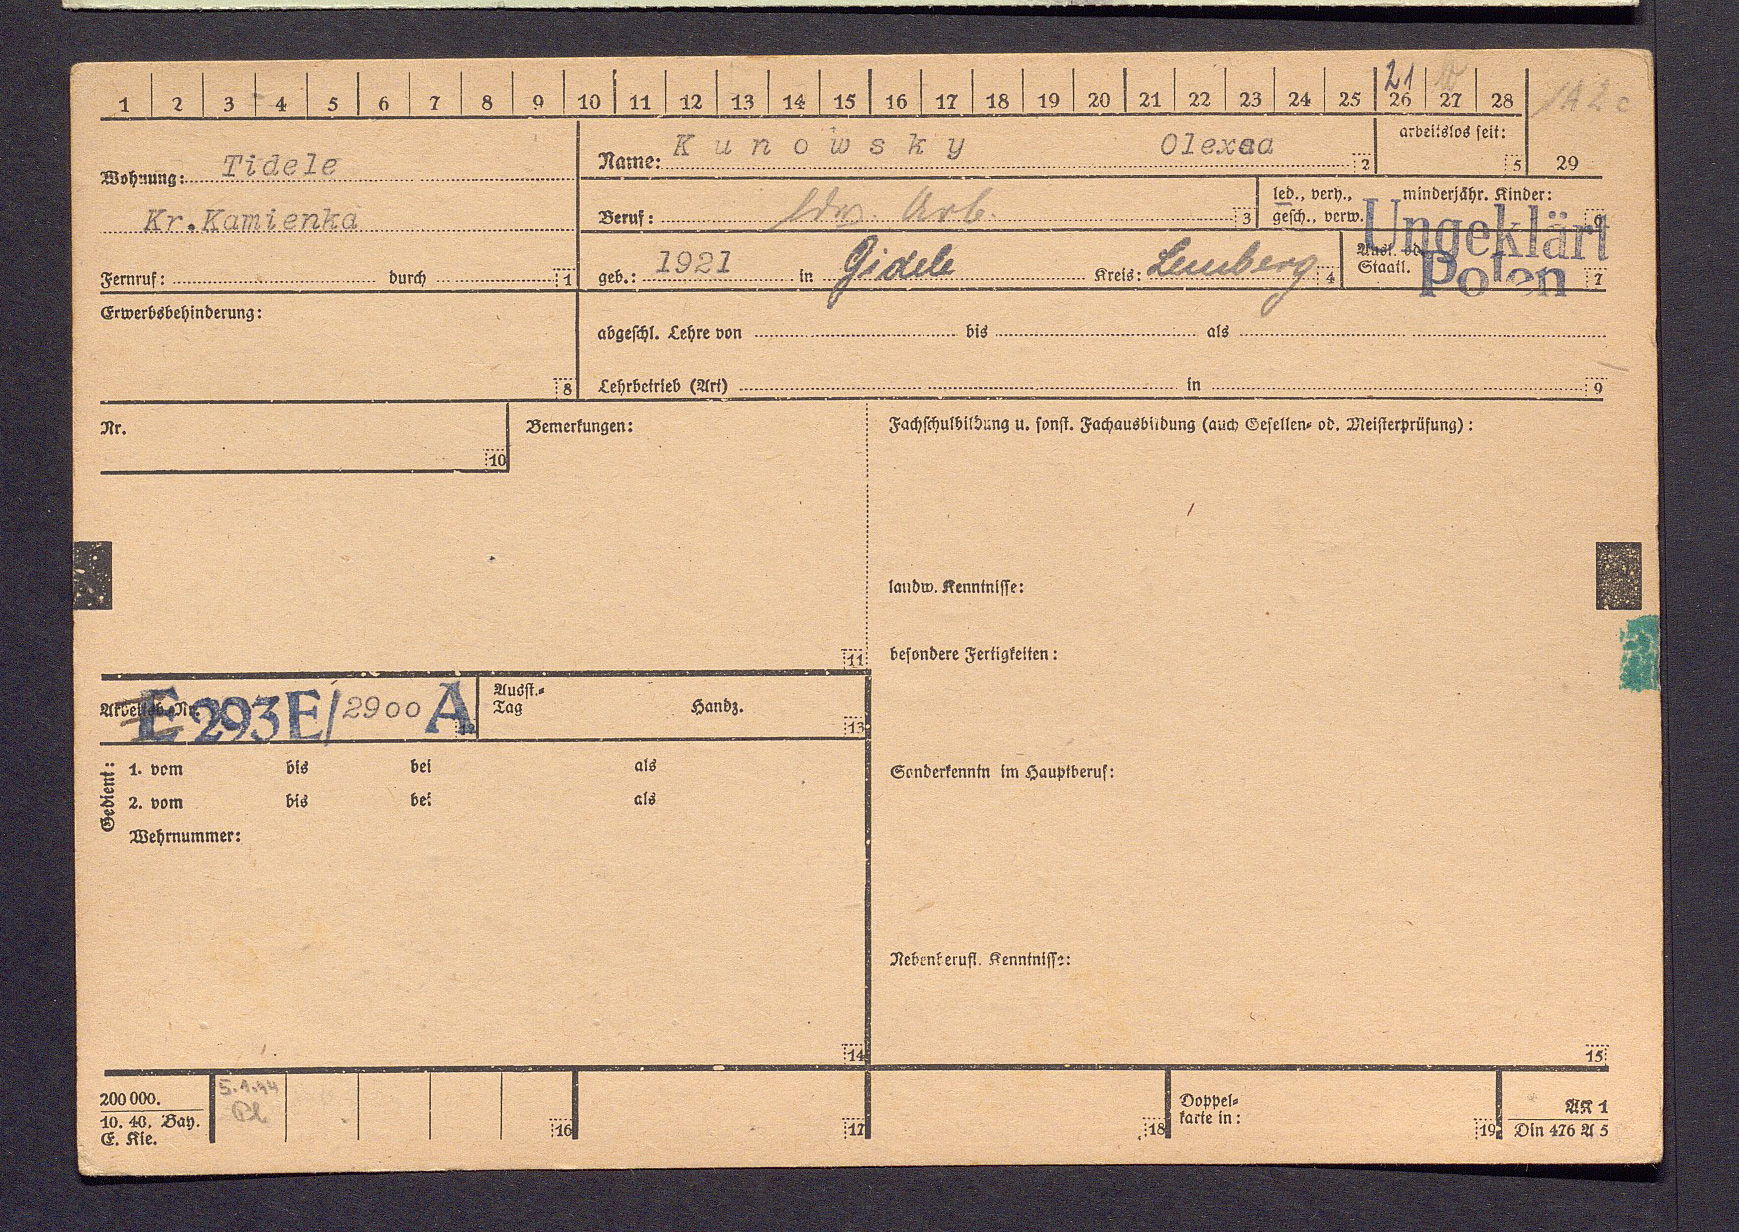 1 2 3 4 5 6 7 8 9 10 11 12 13 14 15 16 17 18 19 20 21 22 23 24 25 26 27 28
21
Wohnung: Tidele
Kr.Kamienka
Fernruf: durch 1
Name: Kunowsky Olexa 2
arbeitslos seit: 5
29
Beruf: ldw. Arb. 3
led., verh., gesch., verw.
minderjähr. Kinder: 6
geb.: 1921 in Gidele Kreis: Lemberg 4
Ausl. od. Staatl. 7
Ungeklärt
Polen
Erwerbsbehinderung: 8
abgeschl. Lehre von bis als
Lehrbetrieb (Art) in 9
Nr. 10
Bemerkungen: 11
Fachschulbildung u. sonst. Fachausbildung (auch Gesellen- od. Meisterprüfung):
landw. Kenntnisse:
besondere Fertigkeiten:
Arbeitsb.-Nr. E 293E/2900 A 12
Ausst.-Tag Handz. 13
Gedient: 1. vom bis bei als
2. vom bis bei als
Wehrnummer:
Sonderkenntn im Hauptberuf:
Nebenberufl. Kenntnisse:
14
15
200 000.
10. 40. Bay.
E. Kie.
5.1.44
16
17
18
Doppel-
karte in: 19
AK 1
Din 476 A 5